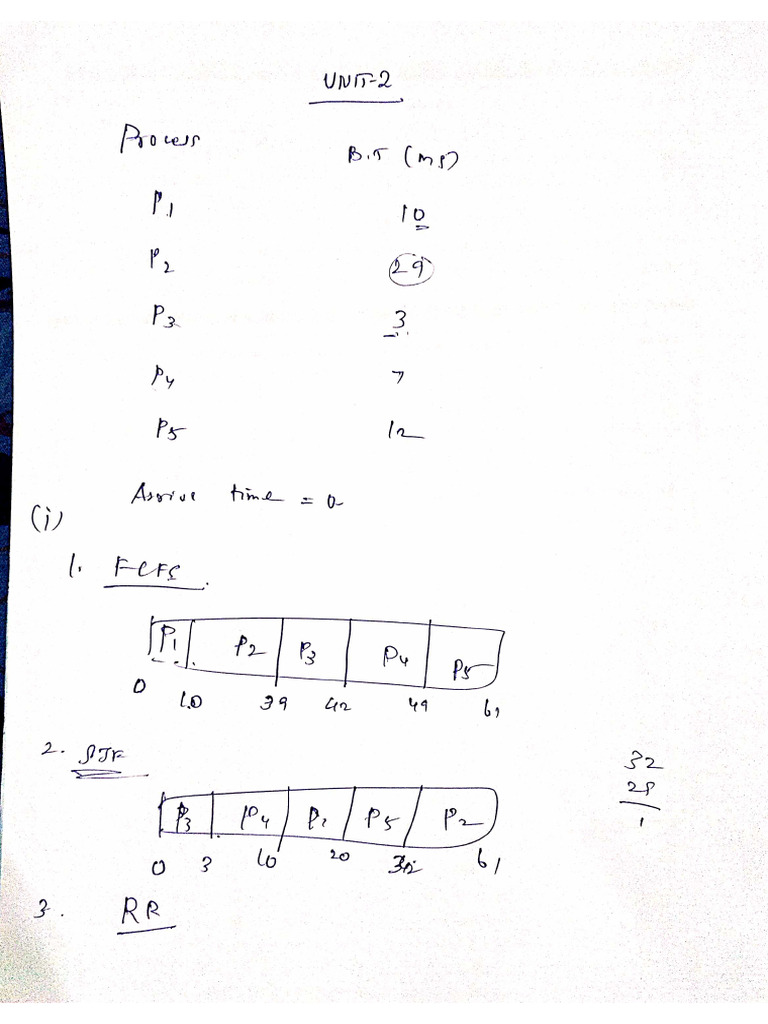 UNIT-2
Process B.T (ms)
P1 10
P2 29
P3 3
P4 7
P5 12
Arrive time = 0
(i)
1. FCFS
P1 P2 P3 P4 P5
0 10 39 42 49 61
2. SJF
32
P3 P4 P1 P5 P2
0 3 10 20 32 61
3. RR